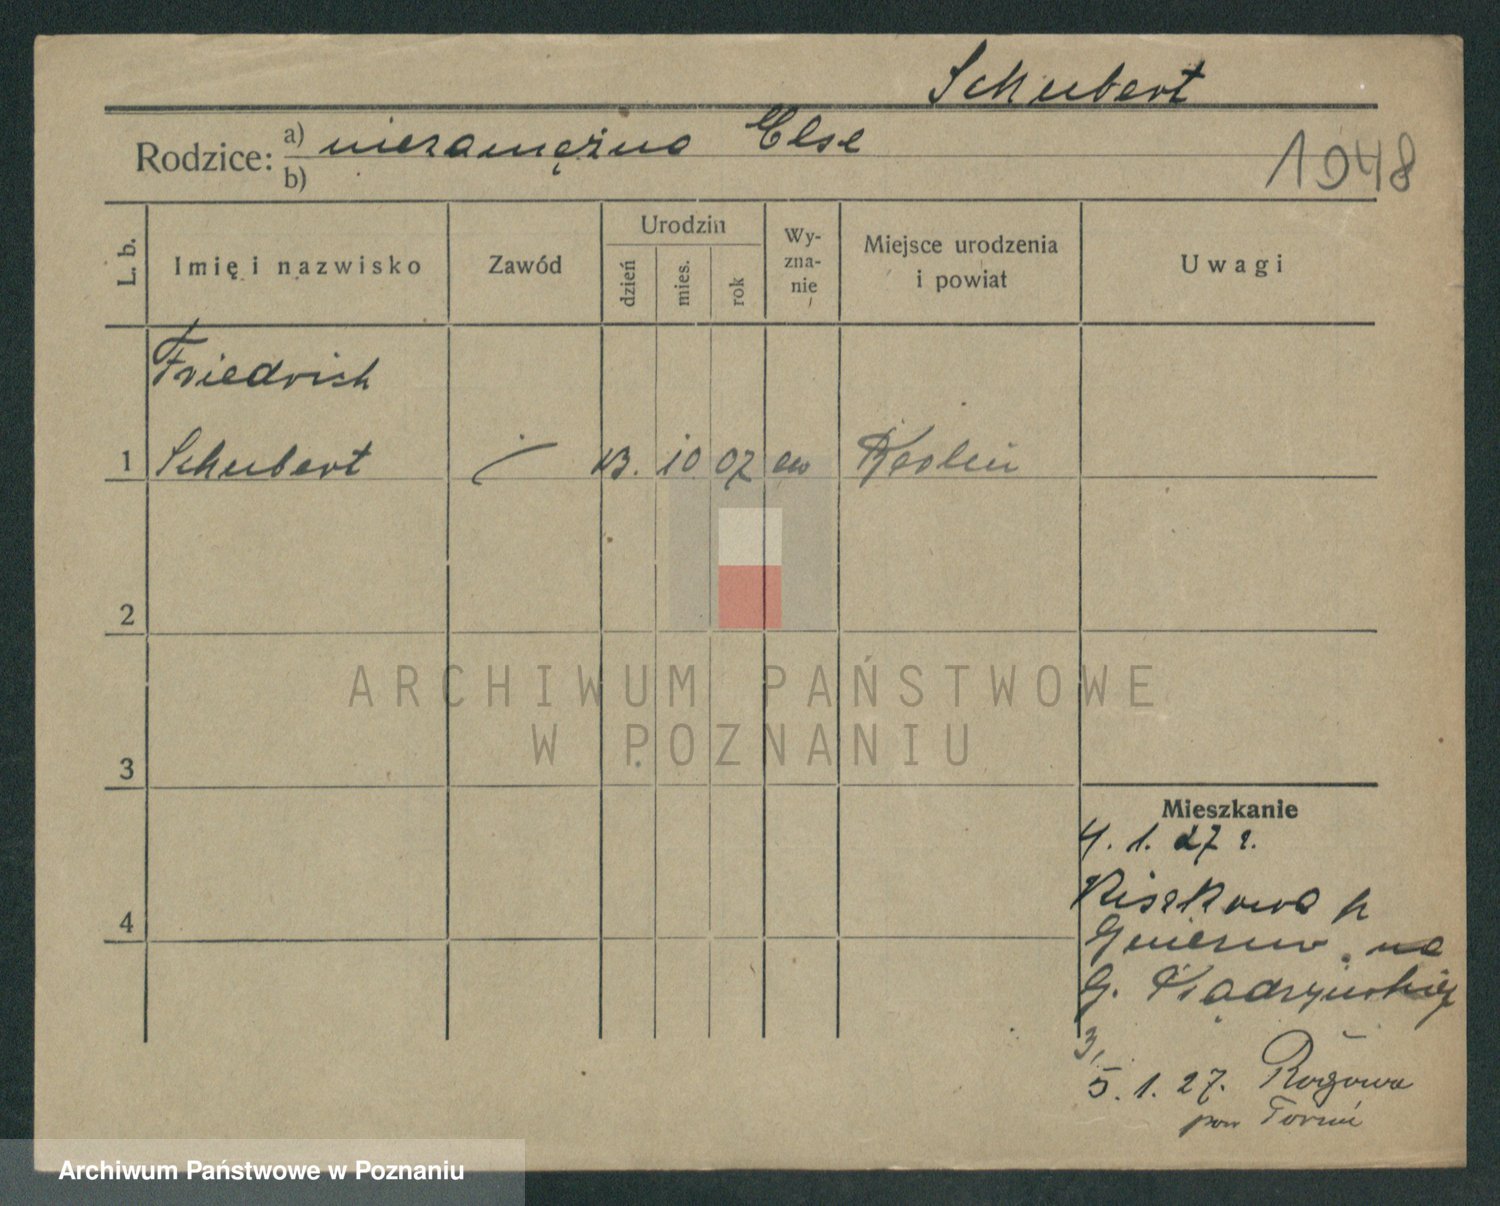 Schubert
Rodzice: a) niezamężna Else
b)
1948
L. b.
Imię i nazwisko
Zawód
Urodzin
dzień
mies.
rok
Wy-
zna-
nie
Miejsce urodzenia
i powiat
Uwagi
Friedrich
1 Schubert 13. 10 07 ew
2
3
4
Mieszkanie
4. 1. 27 r.
na
G.
3,
5. 1. 27. Rogowa
pow Toruń
ARCHIWUM PAŃSTWOWE
W POZNANIU
Archiwum Państwowe w Poznaniu